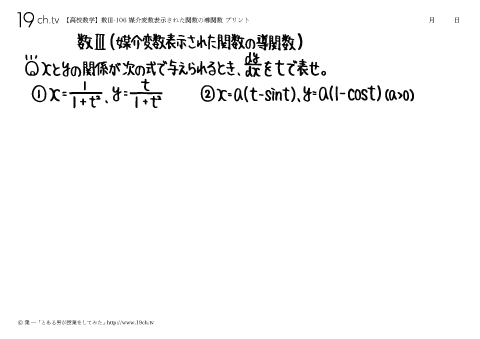 19ch.tv 【高校数学】数Ⅲ-106 媒介変数表示された関数の導関数 プリント 月 日
数Ⅲ(媒介変数表示された関数の導関数)
Q xとyの関係が次の式で与えられるとき、dy/dxをtで表せ。
① x=1/(1+t²)、y=t/(1+t²) ② x=a(t-sint)、y=a(1-cost)(a>0)
© 葉一「とある男が授業をしてみた」http://www.19ch.tv